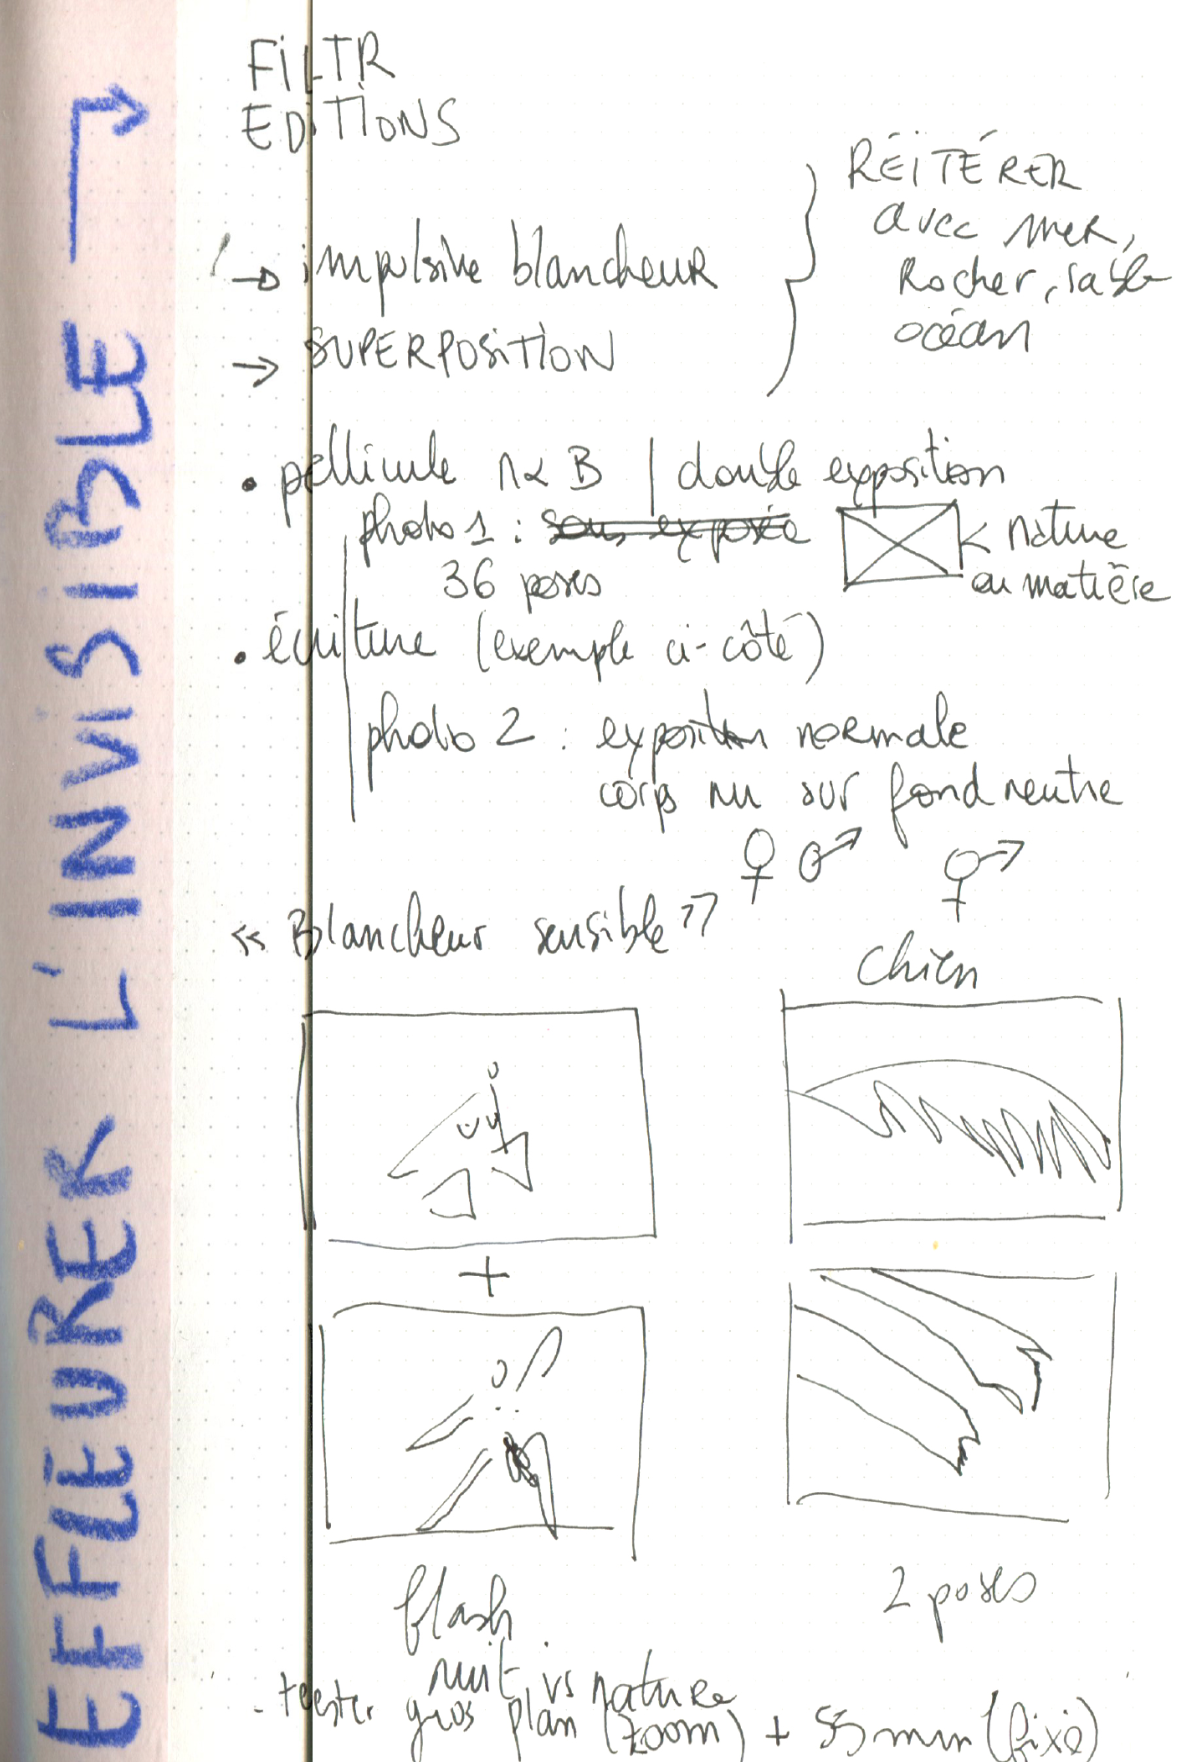 EFFLEURER L'INVISIBLE
FiLTR
EDITIONS
→ impulsive blancheur
→ SUPERPOSITION
RÉITÉRER
avec mer,
Rocher, sable
océan
• pellicule N&B | double exposition
photo 1 : sous exposée
36 poses
nature
ou matière
• écriture (exemple ci-côté)
photo 2 : exposition normale
corps nu sur fond neutre
♀ ♂
« Blancheur sensible »
chien
+
flash
2 poses
nuit vs nature
- tester gros plan (zoom) + 55 mm (fixe)